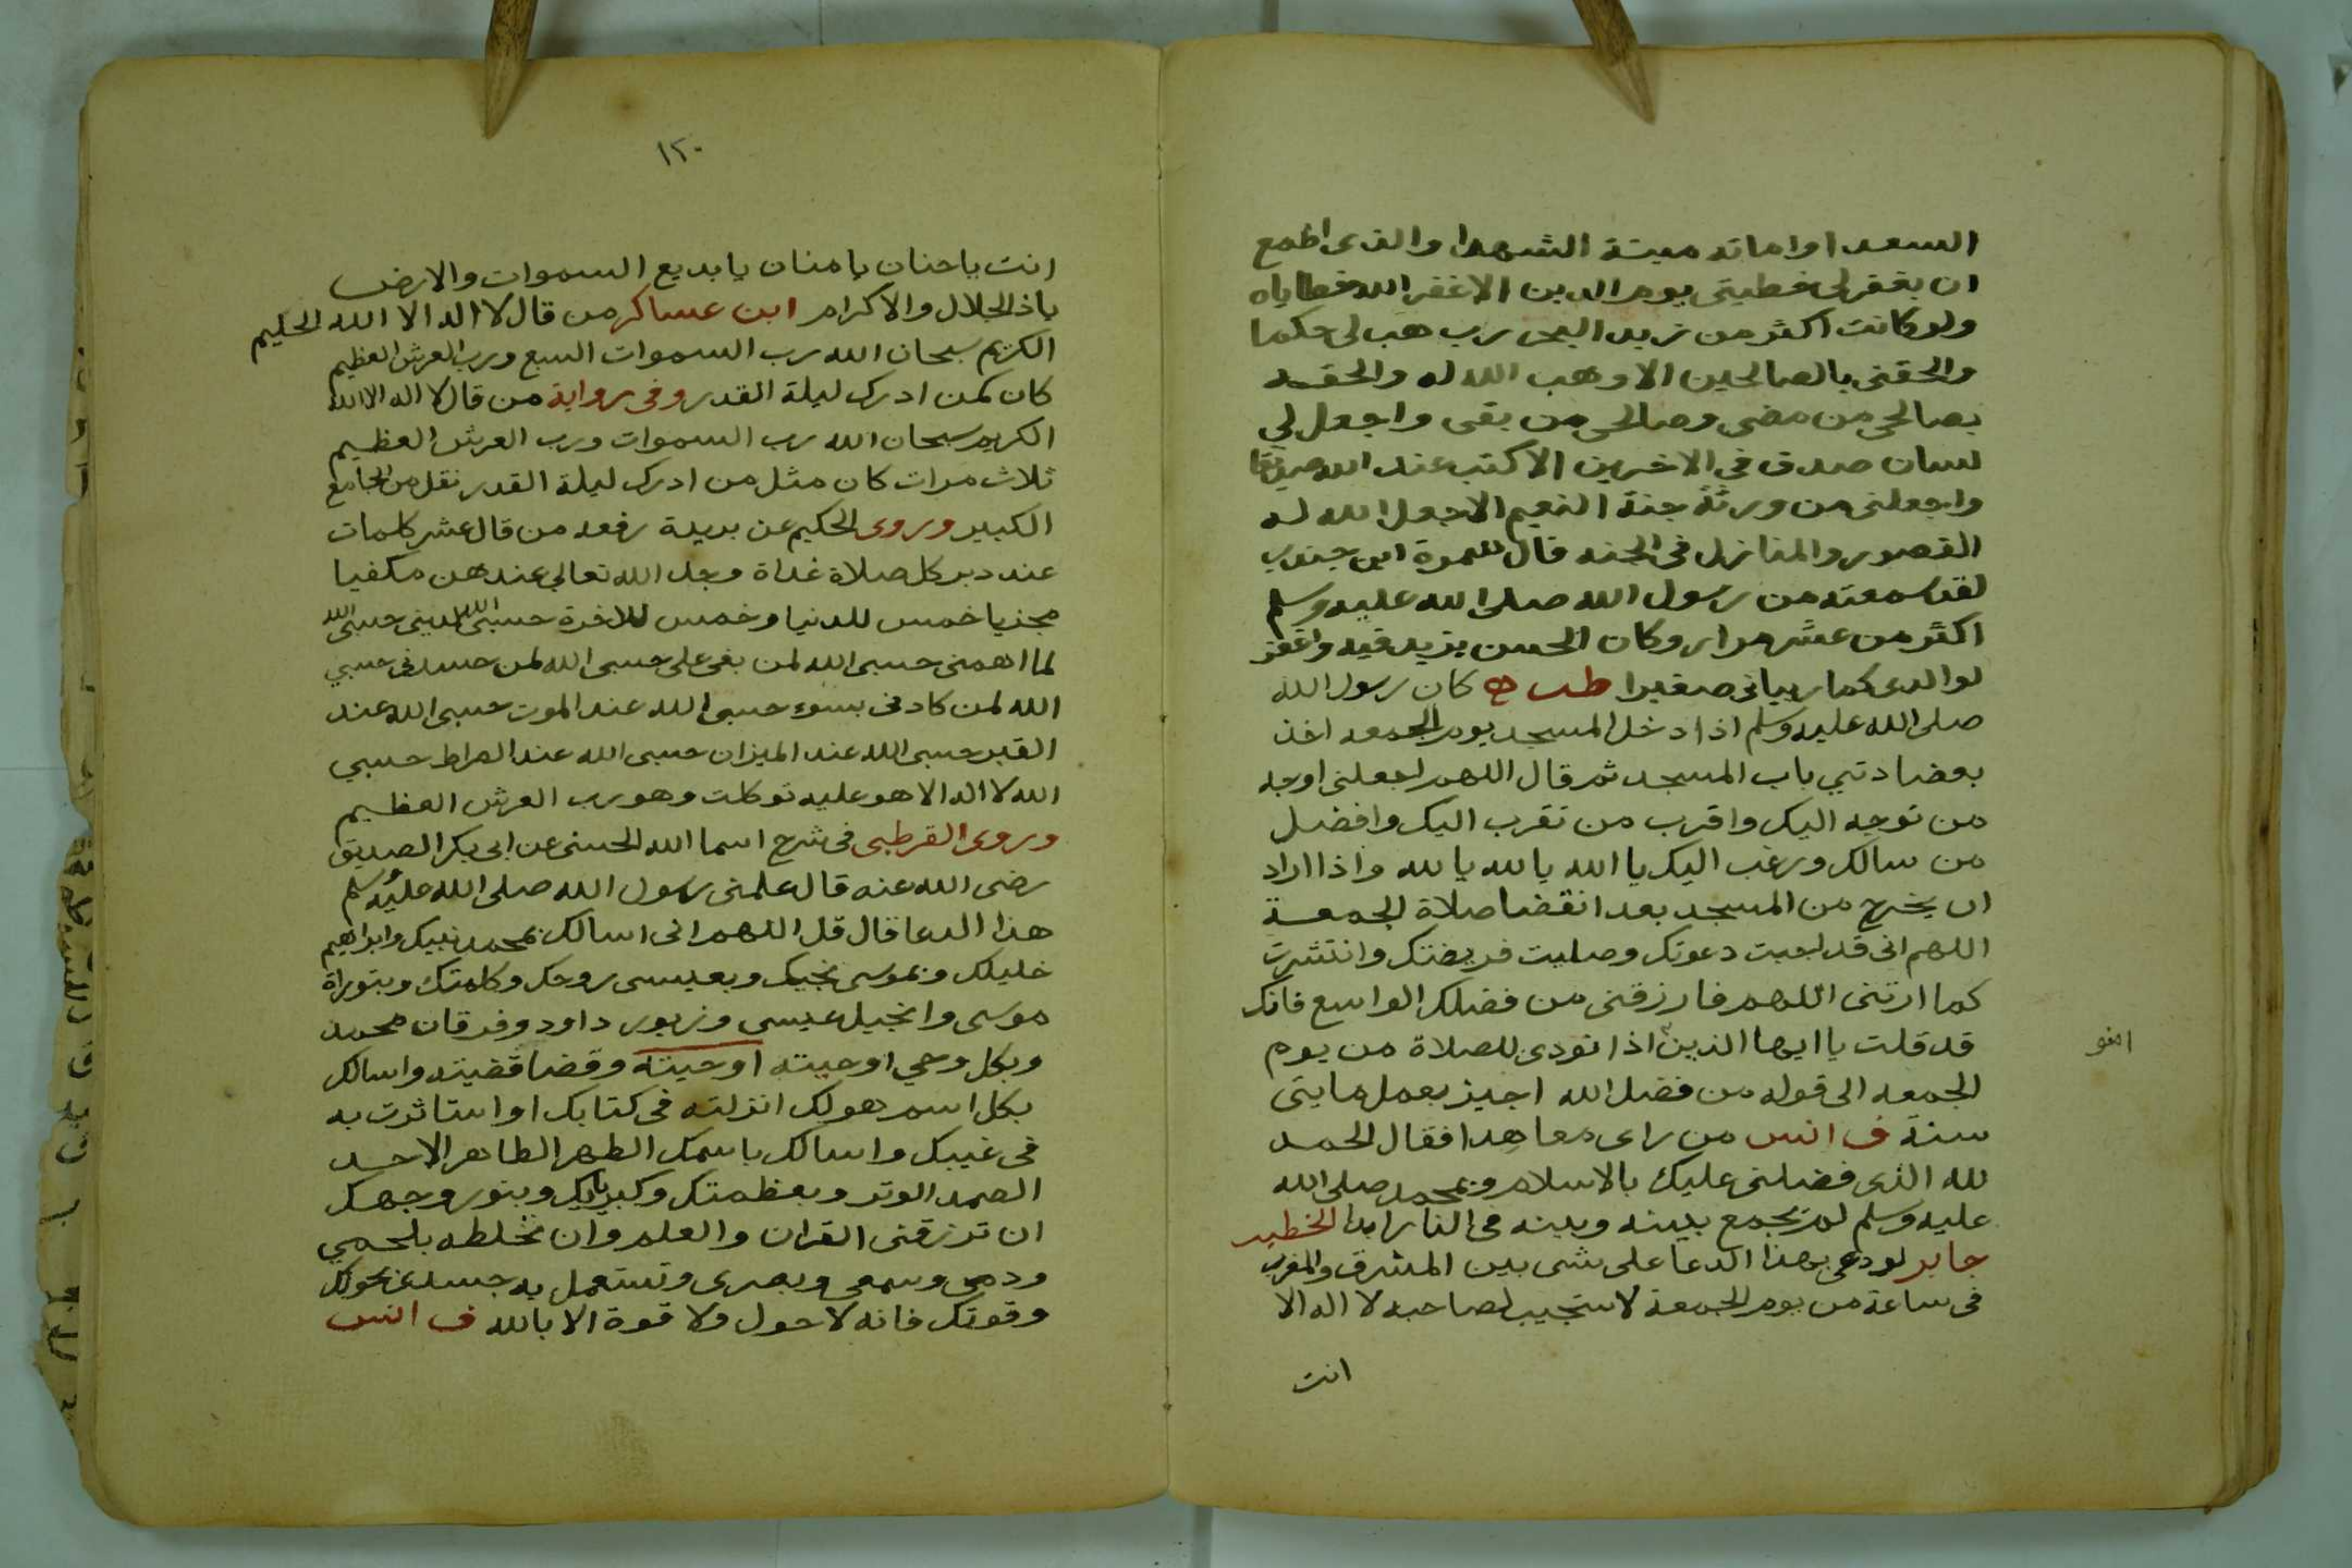 السعدا واماته ميتة الشهدا والذى اطمع
ان يغفر لى خطيتى يوم الدين الا غفر الله خطاياه
ولو كانت اكثر من زبد البحر رب هب لى حكما
والحقنى بالصالحين الا وهب الله له والحقه
بصالحى من مضى وصالحى من بقى واجعل لي
لسان صدق في الاخرين الا كتب عند الله صديقا
واجعلنى من ورثة جنة النعيم الا جعل الله له
القصور والمنازل فى الجنه قال سمرة ابن جندب
لقد سمعته من رسول الله صلى الله عليه وسلم
اكثر من عشر مرار وكان الحسن يزيد فيه واغفر
لوالدى كما ربيانى صغيرا طب كان رسول الله
صلى الله عليه وسلم اذا دخل المسجد يوم الجمعه اخذ
بعضادتي باب المسجد ثم قال اللهم اجعلنى اوجه
من توجه اليك واقرب من تقرب اليك وافضل
من سالك ورغب اليك يا الله يا لله يا لله واذا اراد
ان يخرج من المسجد بعد انقضا صلاة الجمعة
اللهم انى قد اجبت دعوتك وصليت فريضتك وانتشرت
كما امرتنى اللهم فارزقنى من فضلك الواسع فانك
قد قلت يا ايها الذين اذا نودى للصلاة من يوم
امنو
الجمعه الى قوله من فضل الله اجيز بعمل مايتى
سنة ف انس من راى معاهدا فقال الحمد
لله الذى فضلنى عليك بالاسلام وبمحمد صلى الله
عليه وسلم لم يجمع بينه وبينه فى النار ابدا الخطيب
جابر لو دعى بهذا الدعا على شى بين المشرق والمغرب
فى ساعة من يوم الجمعة لاستجيب لصاحبه لا اله الا
انت
١٢٠
انت يا حنان يا منان يا بديع السموات والارض
ياذ الجلال والاكرام ابن عساكر من قال لا اله الا الله الحليم
الكريم سبحان الله رب السموات السبع ورب العرش العظيم
كان كمن ادرك ليلة القدر وفى رواية من قال لا اله الا الله
الكريم سبحان الله رب السموات ورب العرش العظيم
ثلاث مرات كان مثل من ادرك ليلة القدر نقل من الجامع
الكبير وروى الحكيم عن بريدة رفعه من قال عشر كلمات
عند دبر كل صلاة غداة وجد الله تعالى عندهن مكفيا
مجزيا خمس للدنيا وخمس للاخرة حسبى الله لدينى حسبى الله
لما اهمنى حسبى الله لمن بغى على حسبى الله لمن حسدنى حسبي
الله لمن كادنى بسوء حسبى الله عند الموت حسبى الله عند
القبر حسبى الله عند الميزان حسبى الله عند الصراط حسبي
الله لا اله الا هو عليه توكلت وهو رب العرش العظيم
وروى القرطبى فى شرح اسما الله الحسنى عن ابى بكر الصديق
رضى الله عنه قال علمنى رسول الله صلى الله عليه وسلم
هذا الدعا قال قل اللهم انى اسالك بمحمد نبيك وابراهيم
خليلك وبموسى نجيك وبعيسى روحك وكلمتك وبتوراة
موسى وانجيل عيسى وزبور داود وفرقان محمد
وبكل وحي اوحيته اوحيته وقضا قضيته واسالك
بكل اسم هو لك انزلته فى كتابك او استاثرت به
فى غيبك واسالك باسمك الطهر الطاهر الاحد
الصمد الوتر وبعظمتك وكبريايك وبنور وجهك
ان ترزقنى القران والعلم وان تخلطه بلحمي
ودمى وسمعى وبصرى وتستعمل به جسدى بحولك
وقوتك فانه لا حول ولا قوة الا بالله ف انس